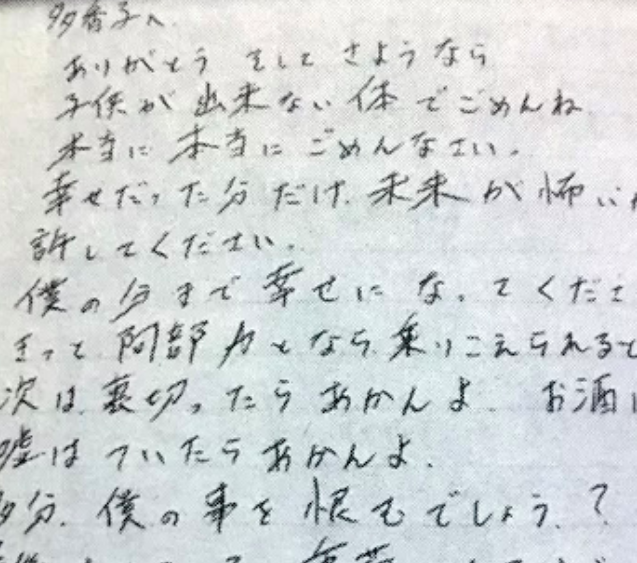 多香子へ
ありがとう そして さようなら
子供が 出来ない 体 でごめんね
本当に 本当に ごめんなさい.
幸せだった分だけ. 未来 が 怖い
許してください.
僕の分まで 幸せに なってくださ
きっと 阿部 力となら. 乗りこえられると
次は. 裏切ったら あかんよ. お酒
嘘は ついたら あかんよ.
多分. 僕の 事を 恨むでしょう. ?